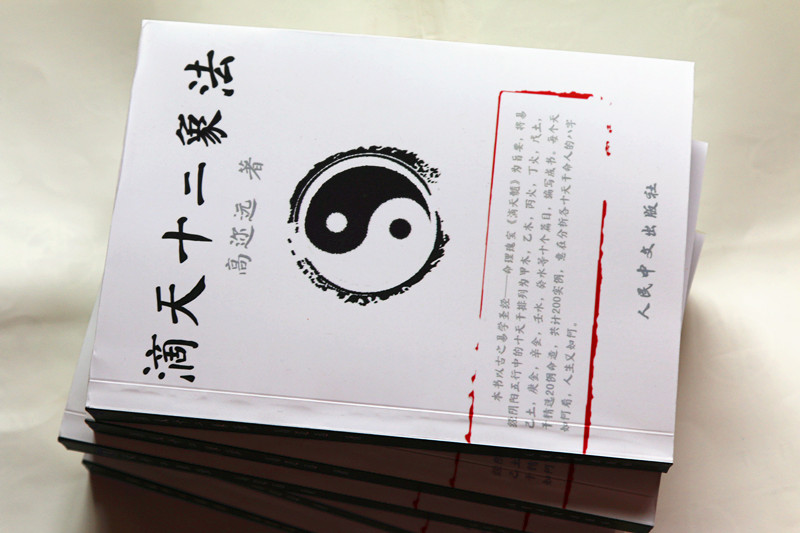 滴天十二象法
高迩远 著
本书以古之易学圣经——命理瑰宝《滴天髓》为旨要，将易
经阴阳五行中的十天干排列为甲木，乙木，丙火，丁火，戊土，
己土，庚金，辛金，壬水，癸水等十个篇目，编写成书。每个天
干精选20例命造，共计200实例，意在分析各十天干命人的八字
如門眉，人生又如門。
人民中文出版社